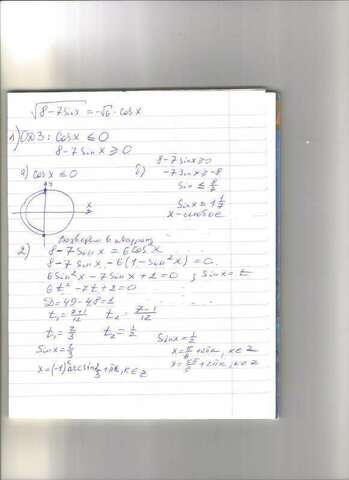 √8-7sinx = -√6 · cosx
1) ОДЗ: cosx ≤ 0
8-7sinx ≥ 0
а) cosx ≤ 0
б) 8-7sinx ≥ 0
-7sinx ≥ -8
sin x ≤ 8/7
sin x ≤ 1 1/7
x - любое
y
x
Возведём в квадрат
2) 8-7sinx = 6cos²x
8-7sinx - 6(1-sin²x) = 0
6sin²x - 7sinx + 2 = 0 ; sinx = t
6t² - 7t + 2 = 0
D = 49-48 = 1
t₁ = 7+1/12 t₂ = 7-1/12
t₁ = 2/3 t₂ = 1/2
sinx = 2/3
x = (-1)ᵏ arcsin 2/3 + πk, k ∈ z
sinx = 1/2
x = π/6 + 2πk, k ∈ z
x = 5π/6 + 2πk, k ∈ z